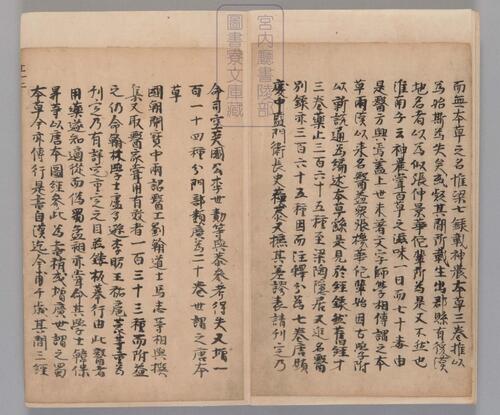 而無本草之名惟梁七錄載神農本草三卷推以
為始斯為失矣或疑其間所載生出郡縣有後漢
地名者以為似張仲景華佗輩所為是又不然也
淮南子云神農嘗百草之滋味一日而七十毒由
是醫方興焉蓋上世未著文字師學相傳謂之本
草兩漢以來名醫益衆張機華佗輩始因古學附
以新說通為編述本草繇是見於經錄然舊經才
三卷藥止三百六十五種至梁陶隱居又進名醫
別錄亦三百六十五種因而注釋分為七卷唐顯
慶中監門衛長史蘇恭又摭其差謬表請刊定乃
命司空英國公李世勣等與恭參考得失又增一
百一十四種分門部類廣為二十卷世謂之唐本
草
國朝開寶中兩詔醫工劉翰道士馬志等相與撰
集又取醫家嘗用有效者一百三十三種而附益
之仍命翰林學士盧多遜李昉王祐扈蒙等重為
刊定乃有詳定重定之目並鏤板摹行由此醫者
用藥遂知適從而偽蜀孟昶亦嘗命其學士韓保
昇等以唐本圖經參比為書稍或增廣世謂之蜀
本草今亦傳行是書自漢迄今甫千歲其間三經
宮内廳書陵部
圖書寮文庫藏